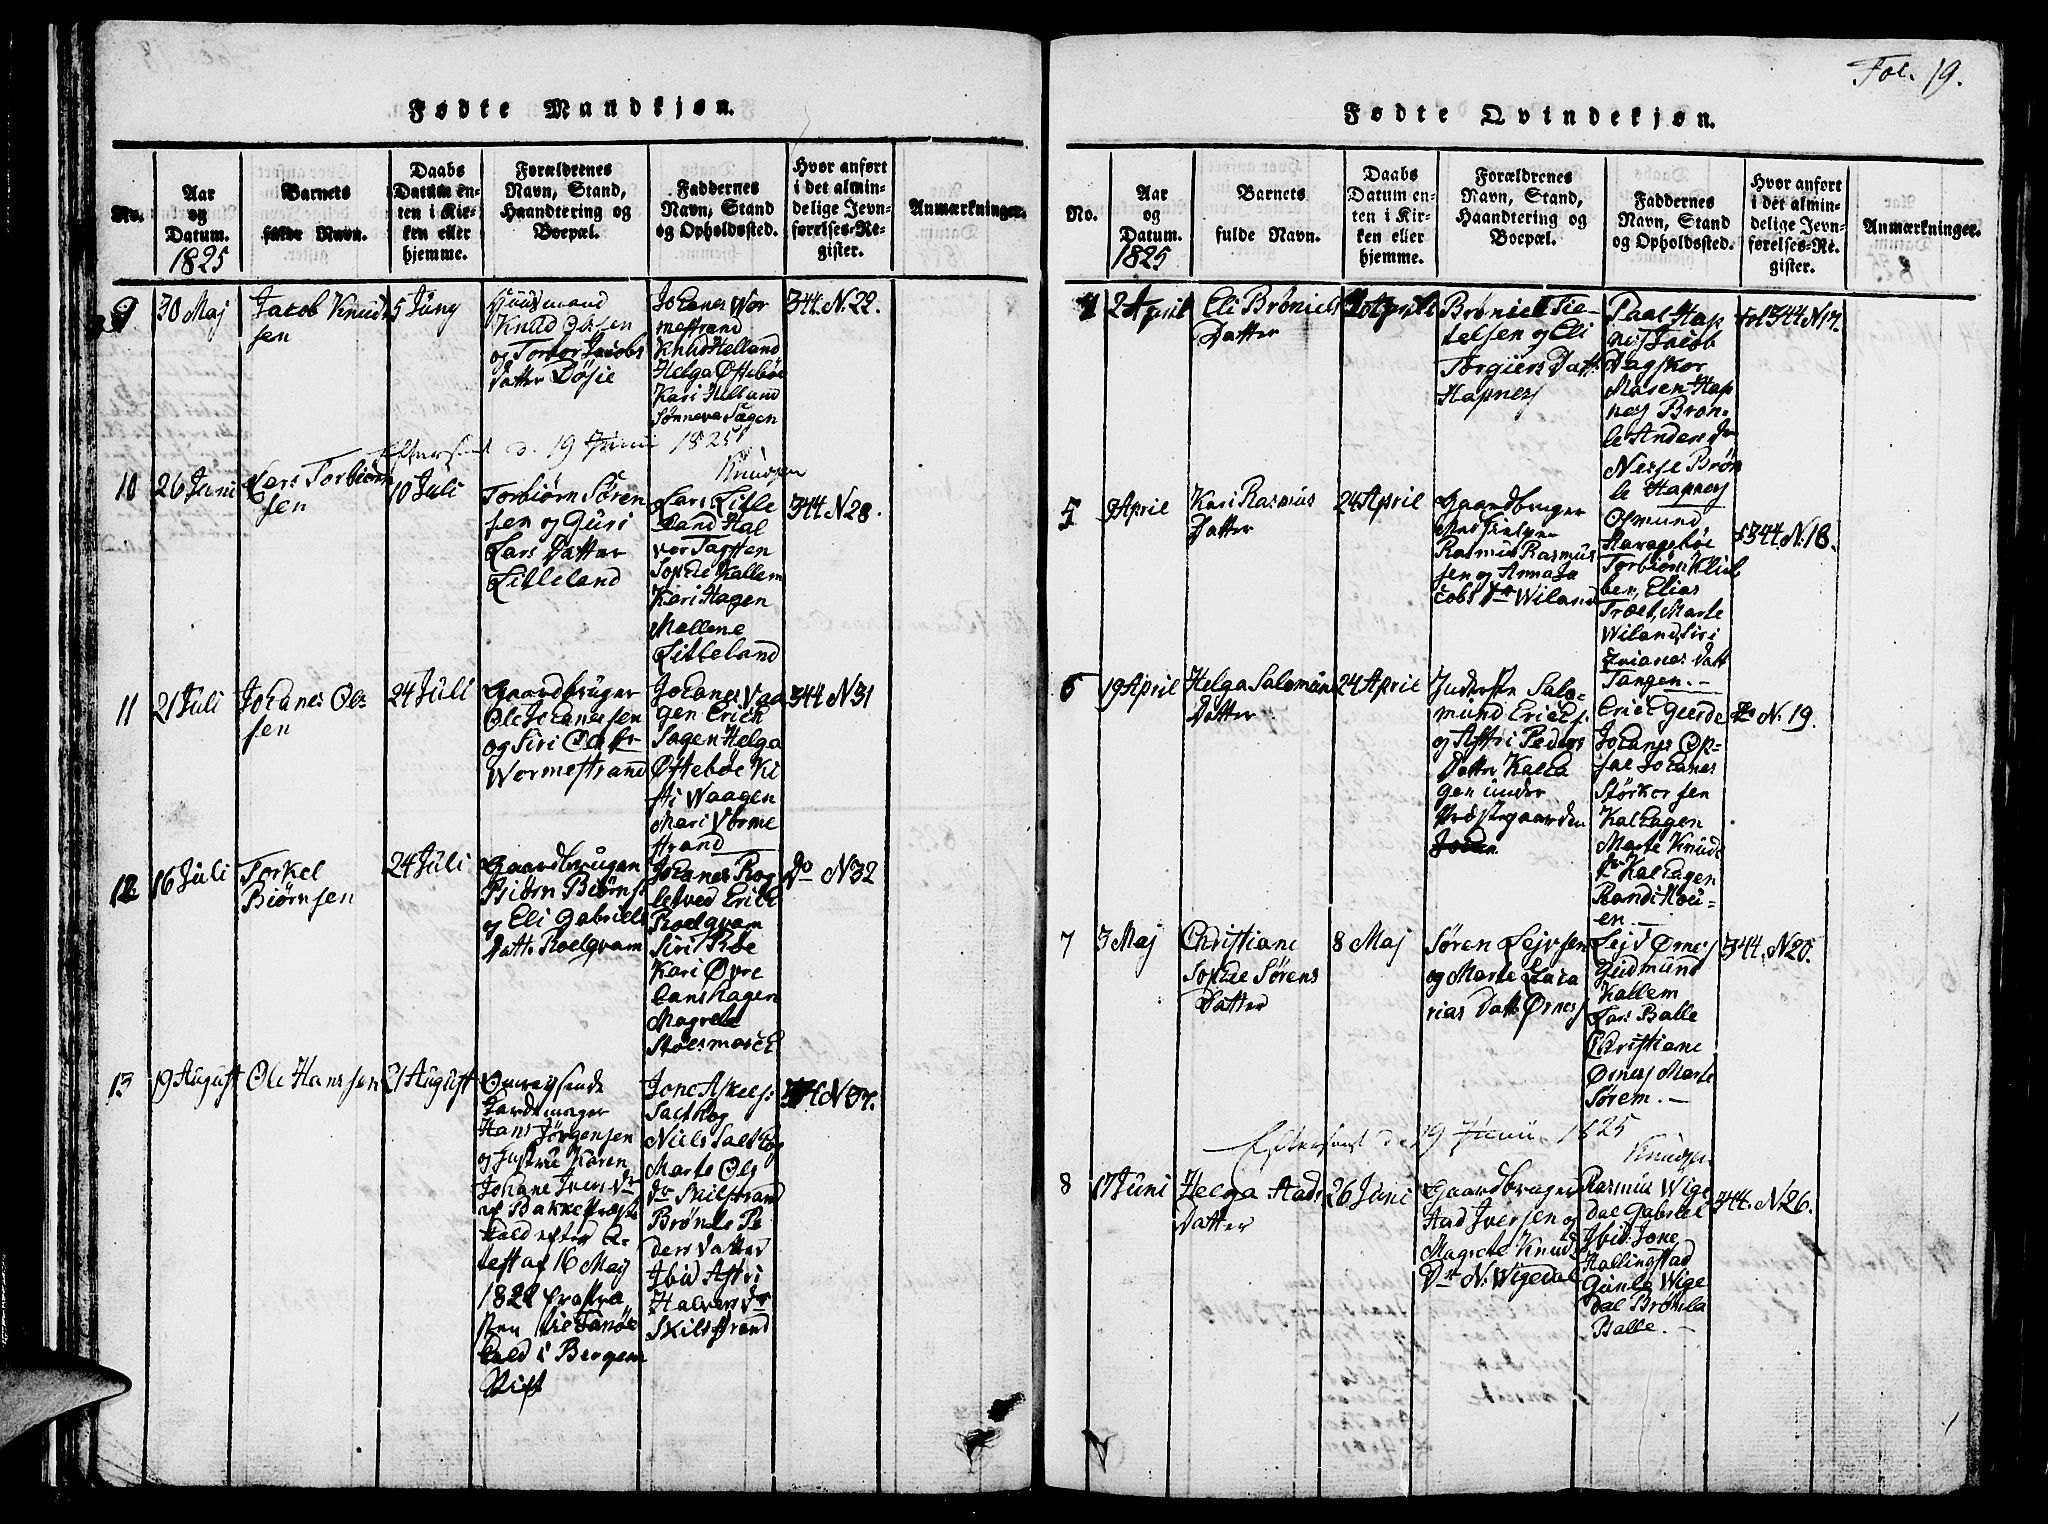 Fol. 19.
Fødte Mandkjøn.
No.
Aar
og
Datum.
1825
Barnets
fulde Navn.
Daabs
Datum en-
ten i Kir-
ken eller
hjemme.
Forældrenes
Navn, Stand,
Haandtering og
Boepæl.
Faddernes
Navn, Stand
og Opholdssted.
Hvor anført
i det almin-
delige Jevn-
førelses-Re-
gister.
Anmærkninger.
9
30 Maj
Jacob Knud
sen
5 Juny
Huusmand
Knud Olsen
og Torbor Jacobs
Datter Døsie
Johanes Wor
mestrand
Knud Helland
Helga Østebøe
Kari Helland
Sønneva Sagen
344. N. 22.
Efterseet d. 19 Junii 1825
Knudsen
10
26 Juni
Lars Torbiørn
sen
10 Juli
Torbiørn Søren
sen og Guri
Lars Datter
Litleland
Lars Litle
land Hal
vor Tasten
Sophie Kallem
Kari Hagen
Mallene
Litleland
344 N 28.
11
21 Juli
Johanes Ols
sen
24 Juli
Gaardbruger
Ole Johanessen
og Siri
Wormestrand
Johanes Vaa
gen Erich
Sagen Helga
Østebøe Ki
sti Waagen
Mari Vorme
strand
344 N 31
12
16 Juli
Torkel
Biørnsen
24 Juli
Gaardbruger
Biørn Biørns:
og Eli Gabriels
Datt: Roelqvam
Johanes Rog
letved Erich
Roelqvam
Siri Røe
Kari Øvre
Magrete
Do N 32
13
19 August
Ole Hanssen
21 August
Omreysende
Hans Jørgensen
og Hustrue Karen
Johane Ivers Dr
af Bakke Præste
Gield efter At-
test af 16 Maj
1822 fra
sten til
Gield i Bergens
Stift
Jone Askels:
Salthog
Niels Salthog
Marte Ols
Dr Skilstrand
Brønle Pe
ders Datter
Ibid Astri
Halvers Dr
Skilstrand
N 37.
Fødte Qvindekjøn.
No.
Aar
og
Datum.
1825
Barnets
fulde Navn.
Daabs
Datum en-
ten i Kir-
ken eller
hjemme.
Forældrenes
Navn, Stand,
Haandtering og
Boepæl.
Faddernes
Navn, Stand
og Opholdssted.
Hvor anført
i det almin-
delige Jevn-
førelses-Re-
gister.
Anmærkninger.
4
2 April
Eli Brøniels
Datter
Brøniel Tie-
telsen og Eli
Torgiers Datt:
Hapnes
Paal Hap
nes Jacob
Dagskor
Maren Hap
nes Brøn-
le Anders Dr
Nesse Brøn
le Hapnes
Fol 344 N 17.
5
9 April
Kari Rasmus
Datter
24 April
Gaardbruger
Rasmus Rasmus
sen og Anna Ja
cobs Dr Wiland
Osmund
Torbiørn
ben, Elias
Træet, Marte
Wiland, Siri
Datt
Tangen.
f. 344. N. 18.
6
19 April
Helga Salemuns
Datter
24 April
Indersten Salo-
mund Ericks:
og Astri Peders
Datter Kalha
gen under
Præstegaarden
Erick Gierde
Johanes Op-
sal Johanes
Størkorsen
Kalhagen
Marte Knuds
Dr Kalhagen
Randi
en.
Do N. 19.
7
3 Maj
Christiane
Sophie Sørens
Datter
8 Maj
Søren Lejvsen
og Marte Zaca
rias Datt: Ørnes
Lejv Ørnes
Gudmund
Kallem
Lars Balle
Christiane
Ørnes Marte
Sørem.
344. N 20.
Eftersent d. 19 Junii, 1825
Knudsen
8
17 Juni
Helga Aads
Datter
26 Juni
Gaardbruger
Aad Iversen og
Magrete Knuds
Dtr N. Wigedal
Rasmus Wige
dal Gabriel
Ibid: Jone
Hallingstad
Gunla Wige
dal Brønla
Balle.
344. N 26.